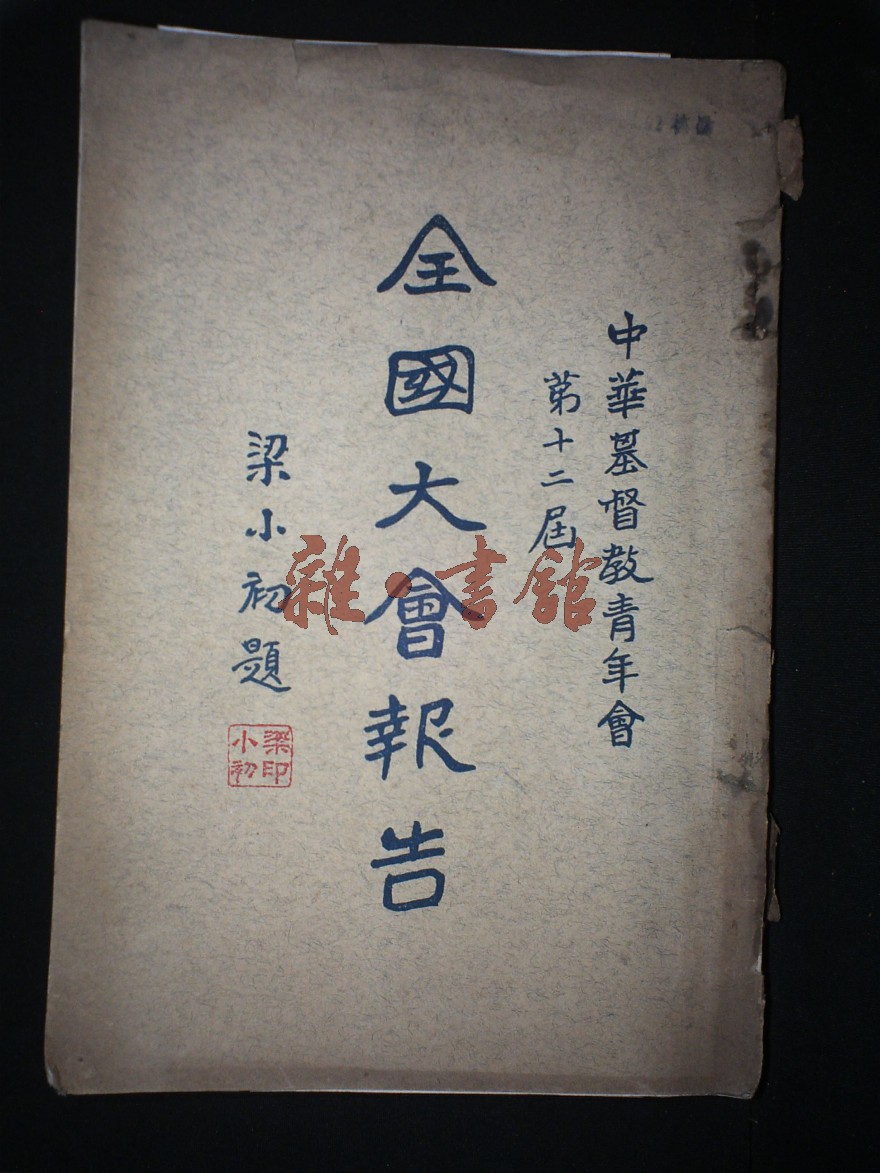 中華基督教青年會
第十二屆
全國大會報告
梁小初題
梁印
小初
雜·書館